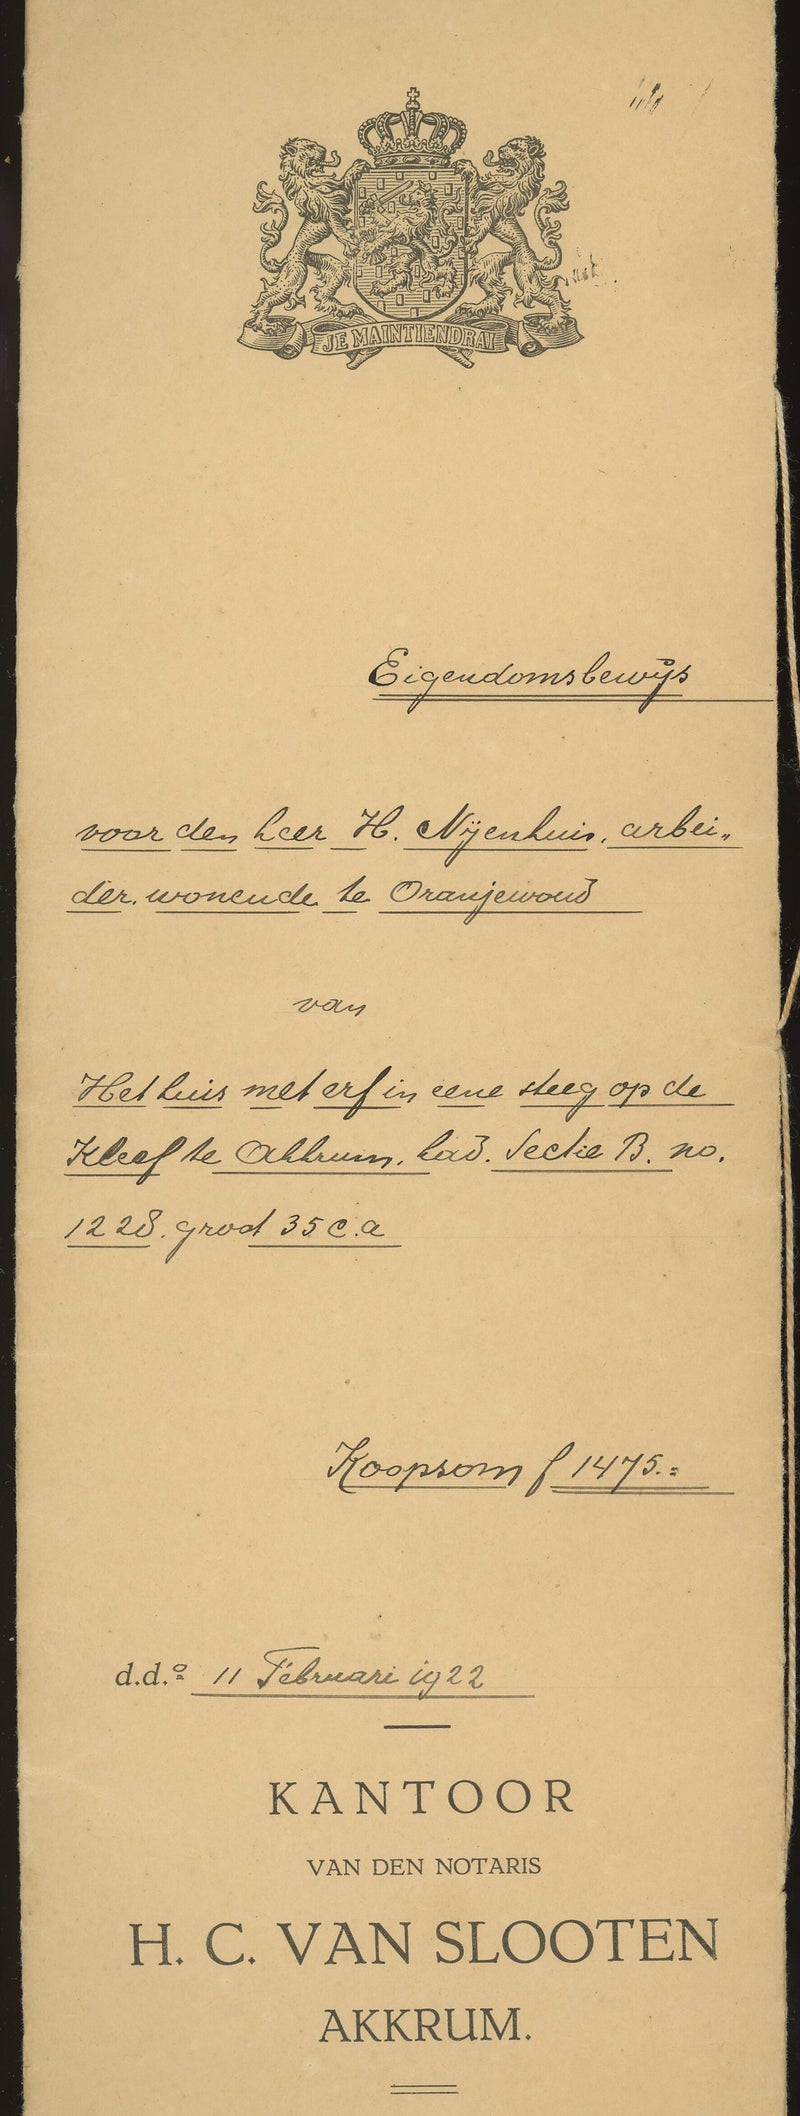 JE MAINTIENDRAI
Eigendomsbewijs
voor den heer H. Nijenhuis, arbei„
der, wonende te Oranjewoud
van
Het huis met erf in eene steeg op de
Kleef te Akkrum, kad. Sectie B. no.
1228. groot 35 c.a
Koopsom f 1475.=
d.d.º 11 Februari 1922
KANTOOR
VAN DEN NOTARIS
H. C. VAN SLOOTEN
AKKRUM.